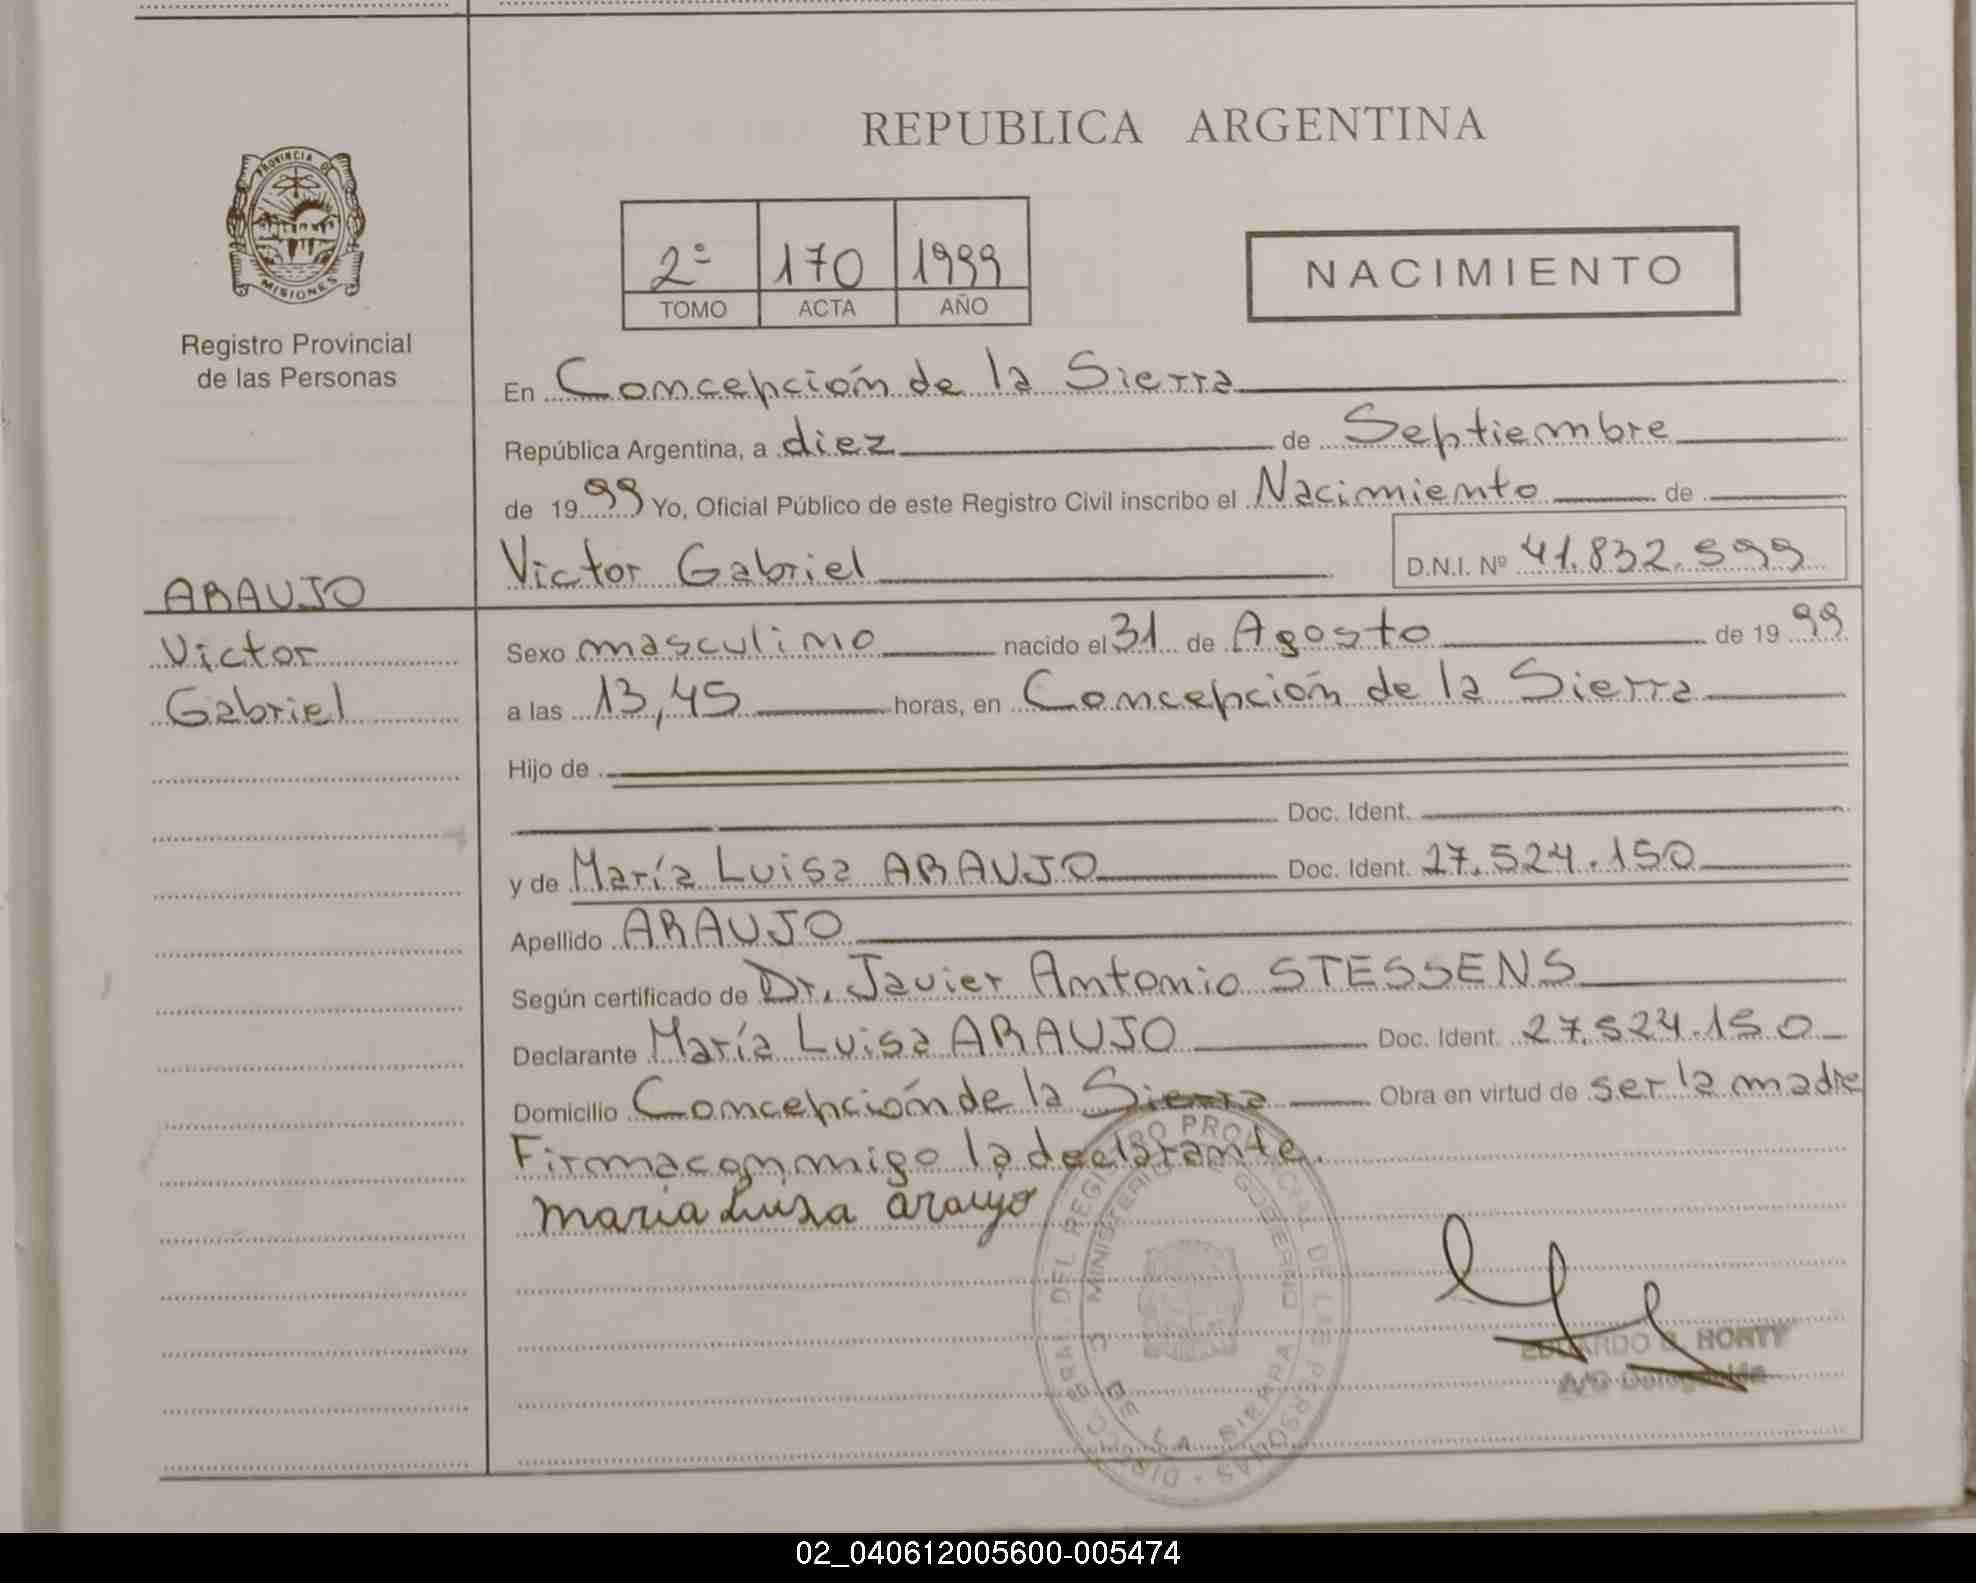 REPUBLICA ARGENTINA
PROVINCIA DE
MISIONES
Registro Provincial
de las Personas
2º 170 1999
TOMO ACTA AÑO
NACIMIENTO
En Concepción de la Sierra
República Argentina, a diez de Septiembre
de 1999 Yo, Oficial Público de este Registro Civil inscribo el Nacimiento de
Victor Gabriel D.N.I. Nº 41.832.599
ARAUJO
Victor
Gabriel
Sexo masculino nacido el 31 de Agosto de 1999
a las 13,45 horas, en Concepción de la Sierra
Hijo de
Doc. Ident.
y de María Luisa ARAUJO Doc. Ident. 27.524.150
Apellido ARAUJO
Según certificado de Dr. Javier Antonio STESSENS
Declarante María Luisa ARAUJO Doc. Ident. 27.524.150
Domicilio Concepción de la Sierra Obra en virtud de ser la madre
Firma conmigo la declarante.
Maria Luisa Araujo
DEL REGISTRO PROVINCIAL DE LAS PERSONAS
MINISTERIO GOBIERNO
DE LA SIERRA
EDUARDO HORTY
A/C Delegación
02_040612005600-005474